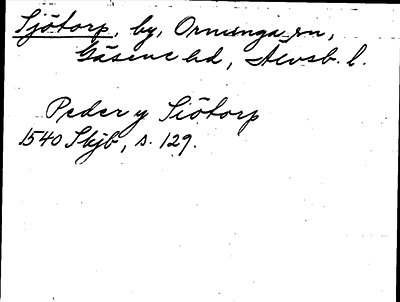 Sjötorp, by, Ornunga sn,
Gäsene hd, Älvsb. l.
Peder y Siötorp
1540 Skjb, s. 129.